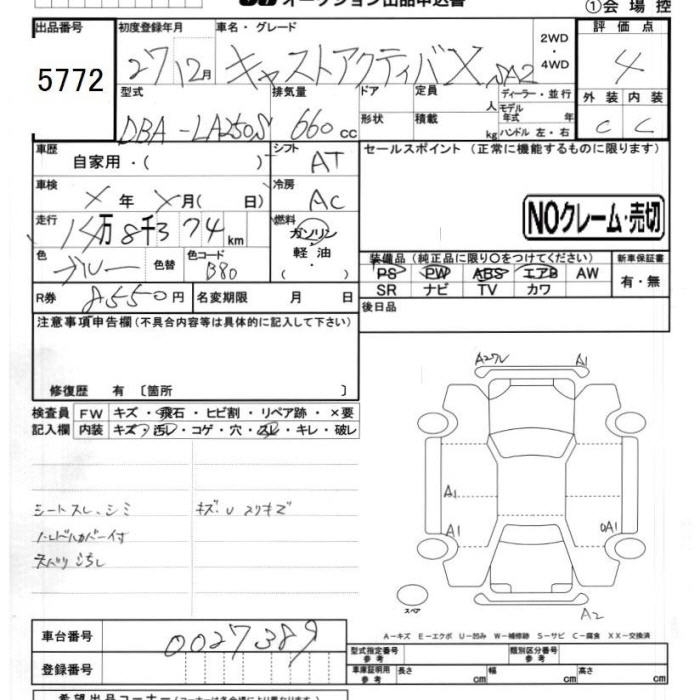 オークション出品申込書
①会場控
出品番号 5772
初度登録年月 27/12月
車名・グレード キャストアクティバX SA2
2WD・4WD
評価点 4
外装 C 内装 C
型式 DBA-LA250S
排気量 660cc
ドア 形状
定員 人
積載 kg
ディーラー・並行
モデル年式 年
ハンドル 左・右
車歴 自家用・( )
シフト AT
セールスポイント(正常に機能するものに限ります)
車検 X年X月( 日)
冷房 AC
NOクレーム・売切
走行 14万8千374km
燃料 ガソリン・軽油・( )
色 ブルー 色替 色コード B80
装備品(純正品に限り○をつけてください)
PS PW ABS エアB AW
SR ナビ TV カワ
新車保証書 有・無
R券 8550円 名変期限 月 日
後日品
注意事項申告欄(不具合内容等は具体的に記入して下さい)
修復歴 有〔箇所 〕
検査員記入欄
FW キズ・飛石・ヒビ割・リペア跡・×要
内装 キズ・汚レ・コゲ・穴・スレ・キレ・破レ
シートスレ、シミ
キズ、U スリキズ
A1
A1
A1
A1
A2
スペア
A-キズ E-エクボ U-凹み W-補修跡 S-サビ C-腐食 XX-交換済
車台番号 0027389
登録番号
型式指定番号 参考
類別区分番号 参考
車庫証明用 参考 長さ cm 幅 cm 高さ cm
希望出品コーナー